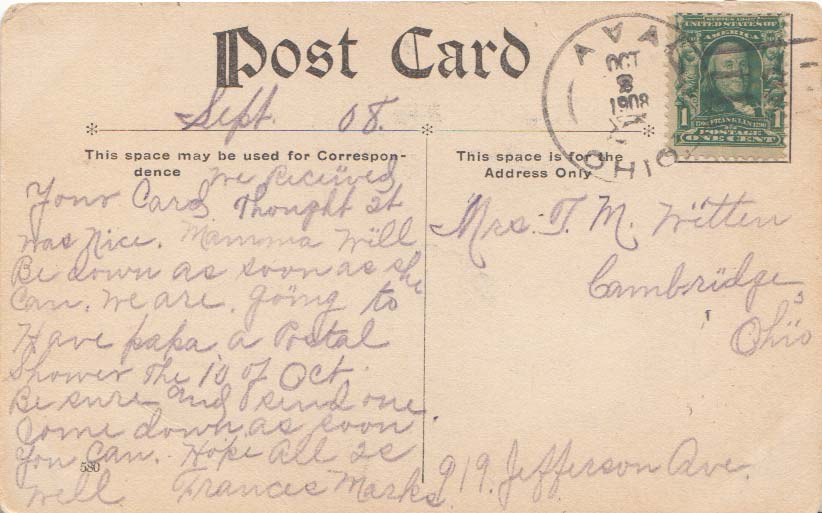 Post Card
Sept. 08.
This space may be used for Correspon-
dence
We Received
Your Card Thought it
was Nice. Mamma Will
Be down as soon as she
Can. We are. Going to
Have papa, a Postal
Shower The 10 of Oct.
Be sure and send one.
Come down as soon
You Can. Hope all is
well Frances Marks
580
This space is for the
Address Only
Mrs. T. M. Witten
Cambridge
Ohio
919. Jefferson Ave.
OCT
1908
OHIO.
SERIES 1902
UNITED STATES OF
AMERICA
1 1
FRANKLIN 1790
POSTAGE
ONE CENT